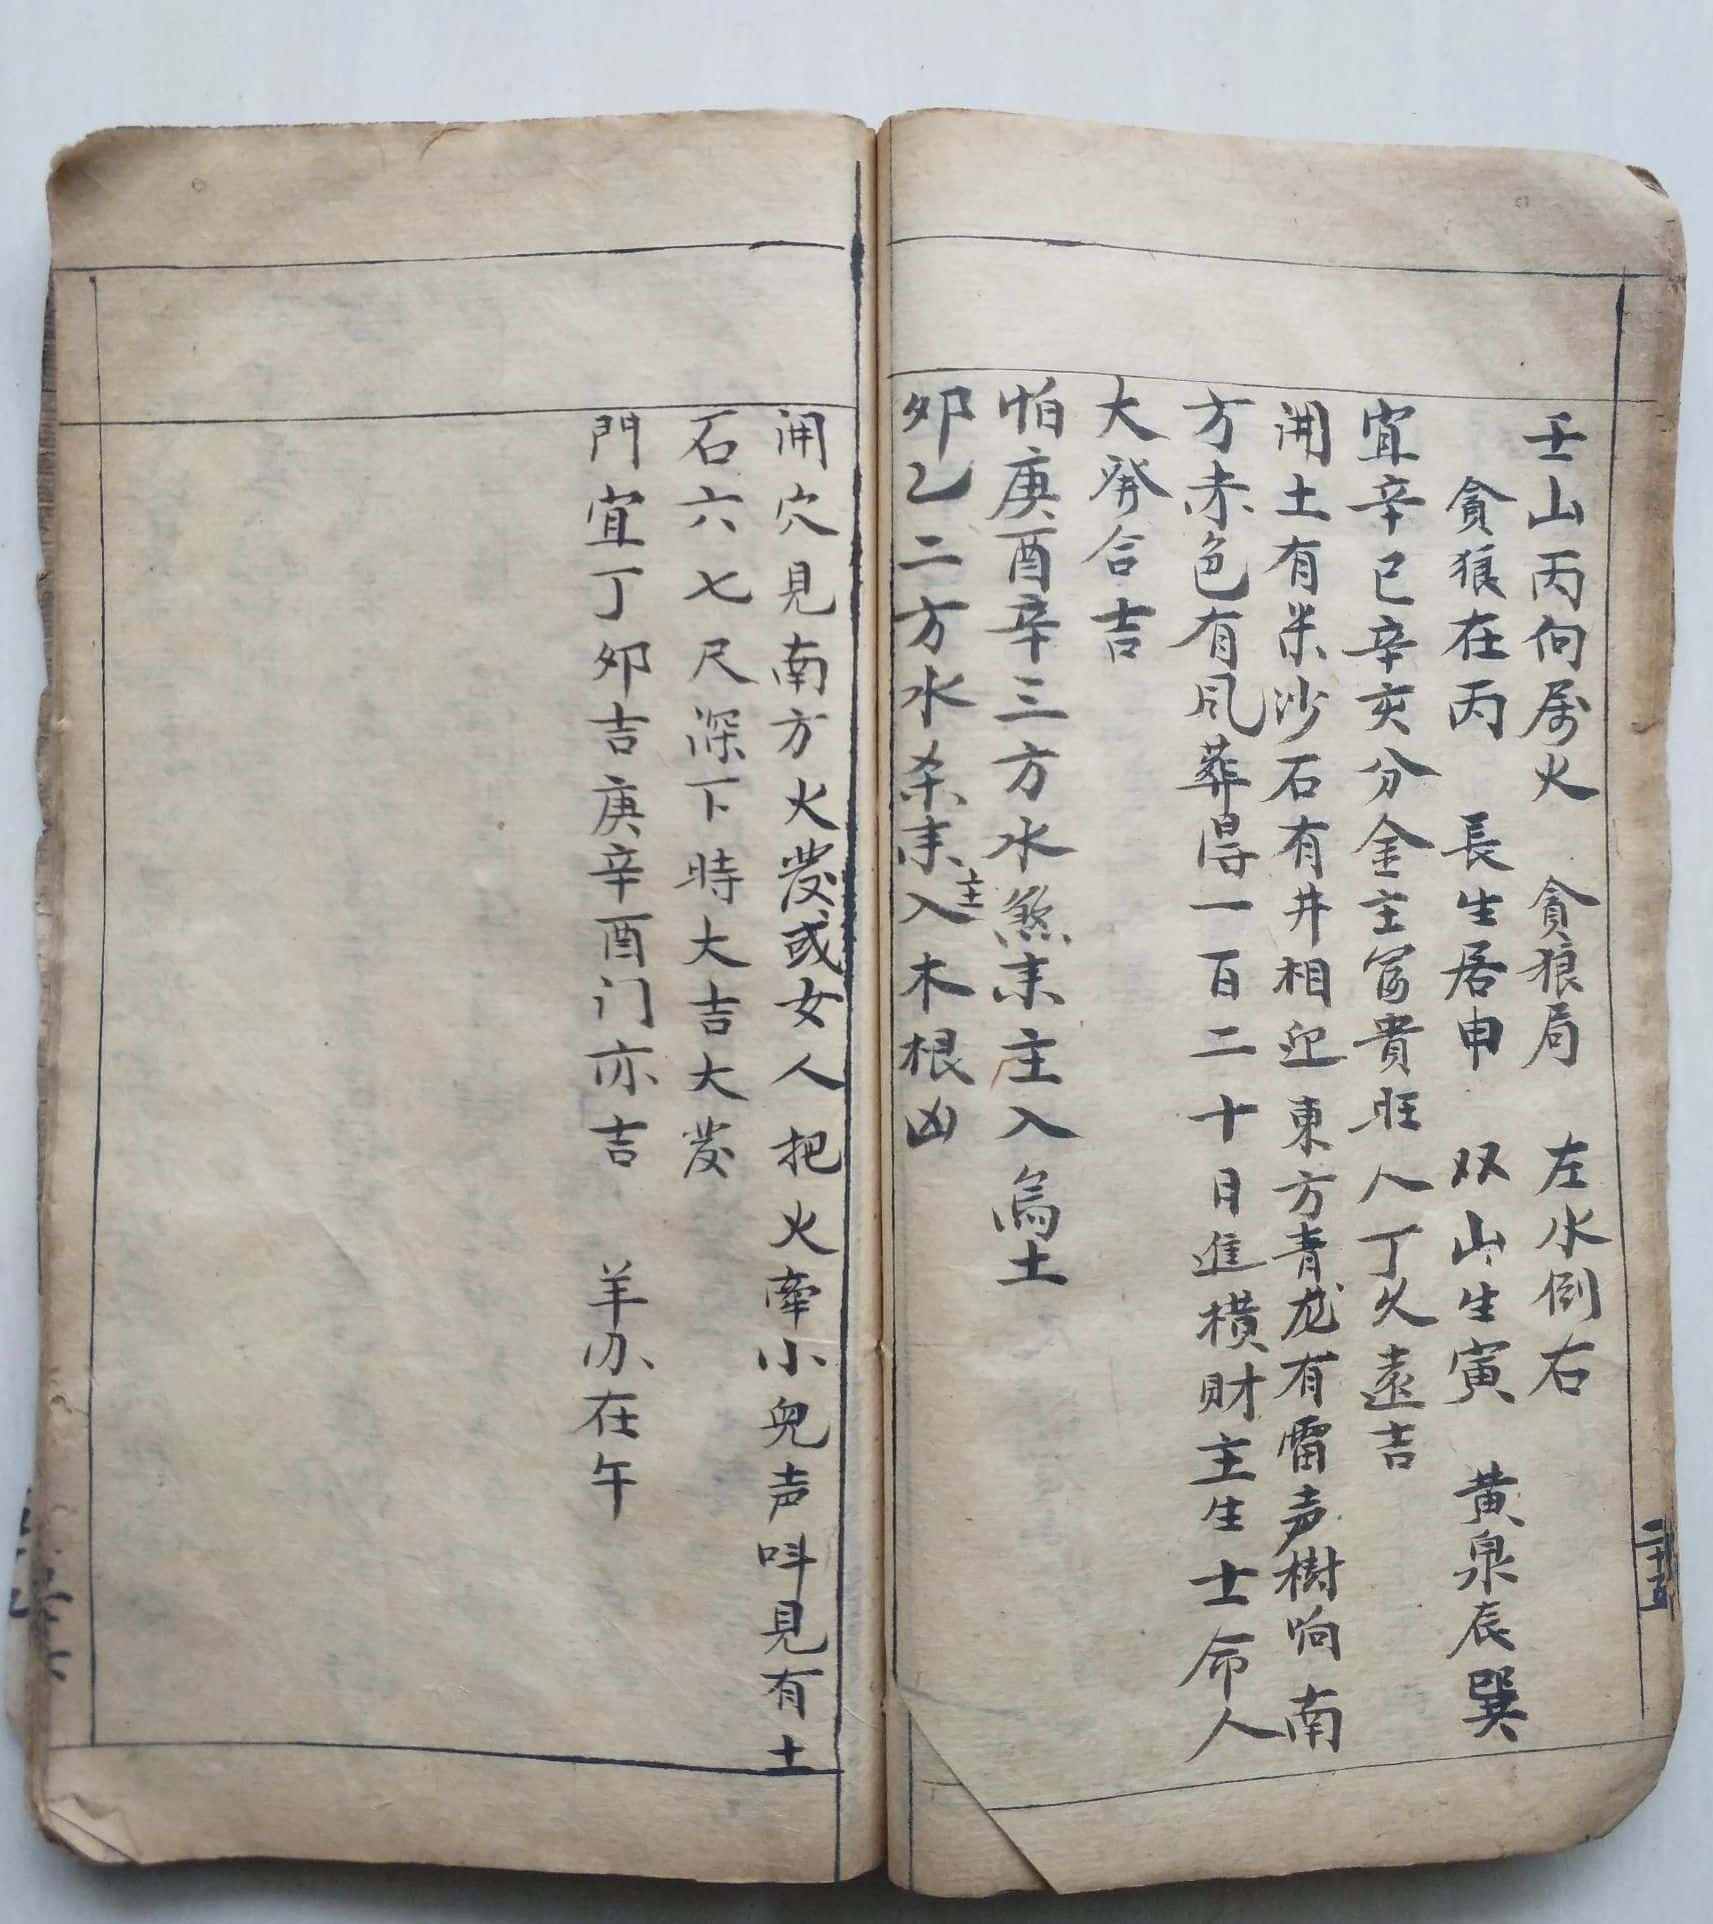 壬山丙向屬火　貪狼局　左水倒右
貪狼在丙　長生居申　双山生寅　黄泉辰巽
宜辛巳辛亥分金主富貴旺人丁久遠吉
開土有米沙石有井相迎東方青龙有雷声樹响南
方赤色有風葬得一百二十日進横財主生士命人
大發合吉
怕庚酉辛三方水煞来主入烏土
夘乙二方水杀来主入木根凶
二十五
開穴見南方火發或女人把火牽小兒声呌見有土
石六七尺深下時大吉大發
門宜丁夘吉庚辛酉门亦吉　羊刃在午